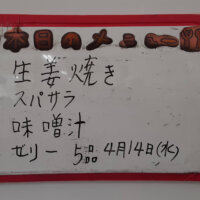 本日のメニュー
生姜焼き
スパサラ
味噌汁
ゼリー 5品 4月14日(水)